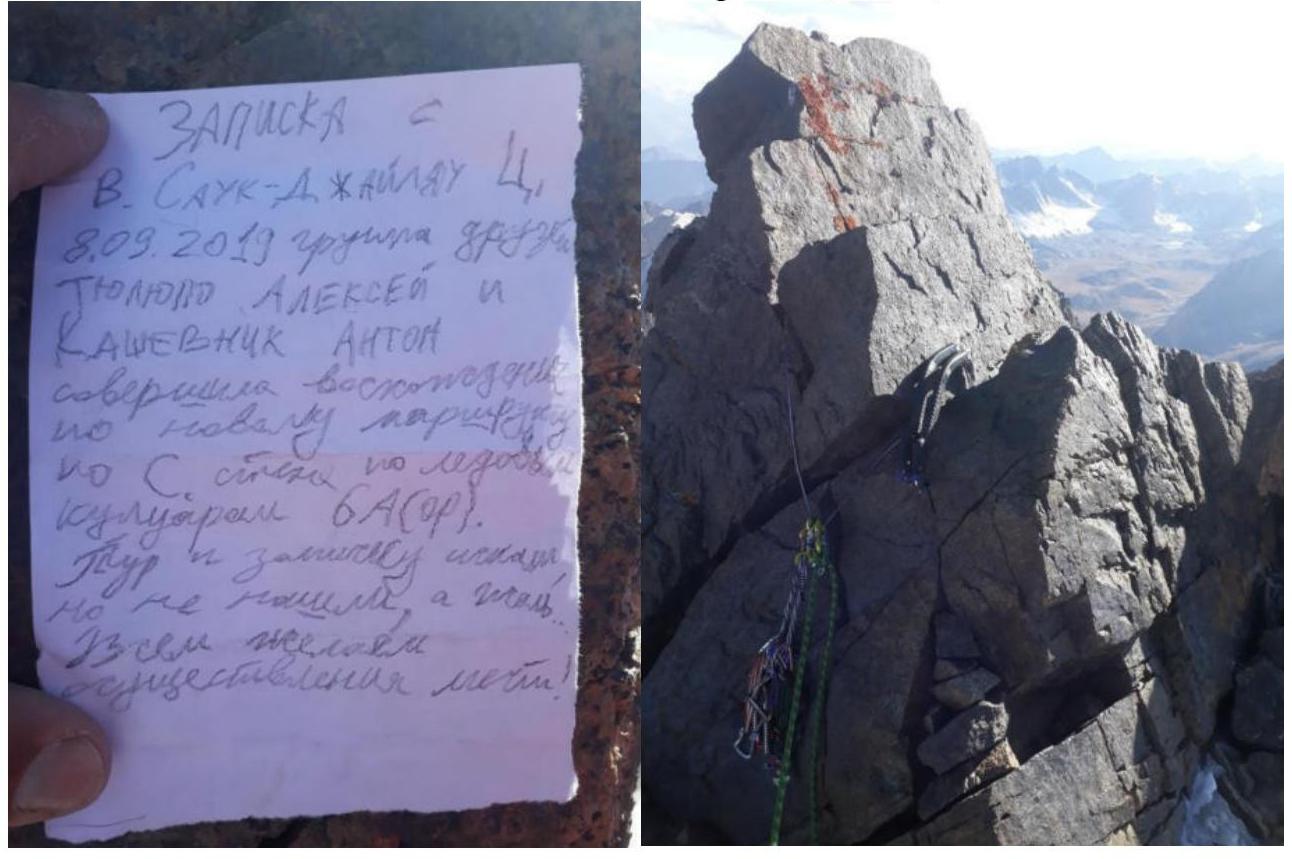 ЗАПИСКА с
В. САУК-ДЖАЙЛЯУ Ц,
8.09.2019 группа друзей
ТЮЛЮПО АЛЕКСЕЙ и
КАШЕВНИК АНТОН
совершила восхождение
по новому маршруту
по С. стене по ледовым
кулуарам 6А(ор).
Тур и записку искали
но не нашли, а жаль..
Всем желаем
осуществления мечты!